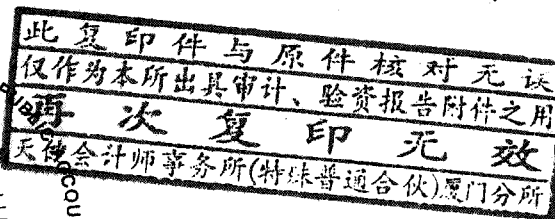 此复印件与原件核对无误
仅作为本所出具审计、验资报告附件之用
再次复印无效
天健会计师事务所(特殊普通合伙)厦门分所